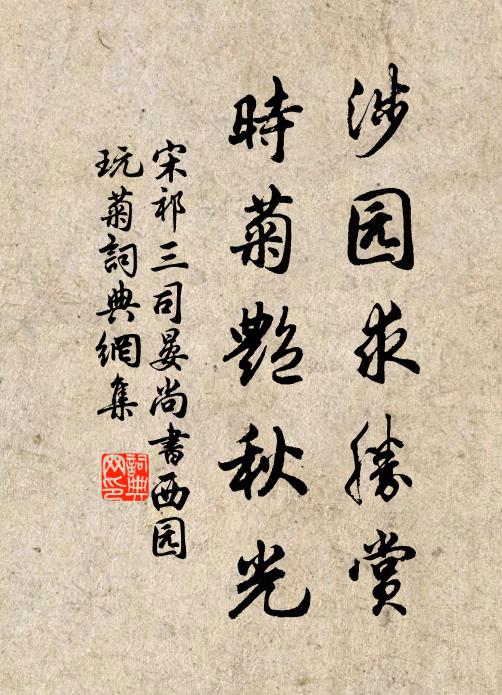 涉园求勝赏
時菊艷秋光
宋祁三司晏尚書西园
玩菊詞典網集
詞典网印